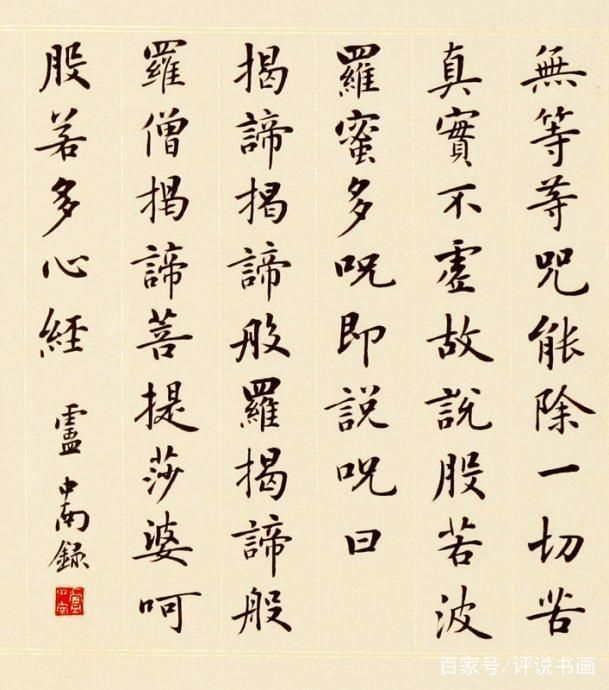 無等等咒能除一切苦
真實不虛故說股若波
羅蜜多呪即說呪曰
揭諦揭諦般羅揭諦般
羅僧揭諦菩提莎婆呵
股若多心經 盧中南録
百家号/评说书画